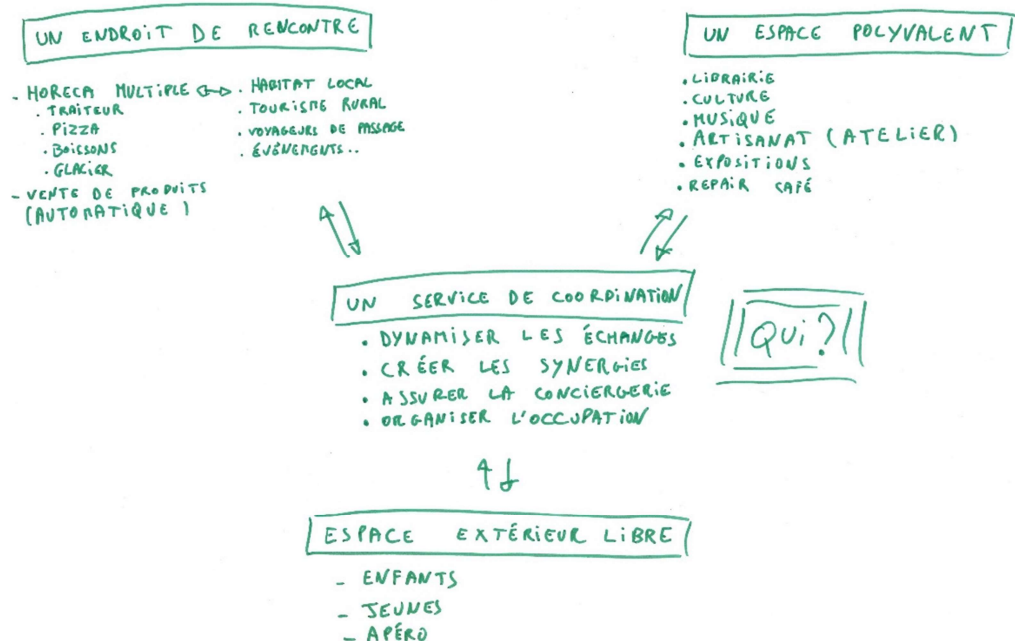 UN ENDROIT DE RENCONTRE
- HORECA MULTIPLE ↔
. TRAITEUR
. PIZZA
. BOISSONS
. GLACIER
- VENTE DE PRODUITS
(AUTOMATIQUE)
. HABITAT LOCAL
. TOURISME RURAL
. VOYAGEURS DE PASSAGE
. ÉVÉNEMENTS..
UN ESPACE POLYVALENT
. LIBRAIRIE
. CULTURE
. MUSIQUE
. ARTISANAT (ATELIER)
. EXPOSITIONS
. REPAIR CAFÉ
UN SERVICE DE COORDINATION
. DYNAMISER LES ÉCHANGES
. CRÉER LES SYNERGIES
. ASSURER LA CONCIERGERIE
. ORGANISER L'OCCUPATION
QUI?
ESPACE EXTÉRIEUR LIBRE
- ENFANTS
- JEUNES
- APÉRO